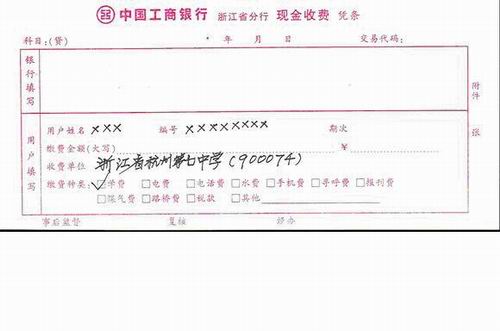 中国工商银行 浙江省分行 现金收费 凭条
科目:(贷) 年 月 日 交易代码:
银行填写
附件 张
用户填写
用户姓名 ××× 编号 ×××××××× 期次
缴费金额(大写) ¥
收费单位 浙江省杭州第七中学(900074)
缴费种类: ✓□学费 □电费 □电话费 □水费 □手机费 □寻呼费 □报刊费
□煤气费 □路桥费 □税款 □其他
事后监督 复核 经办